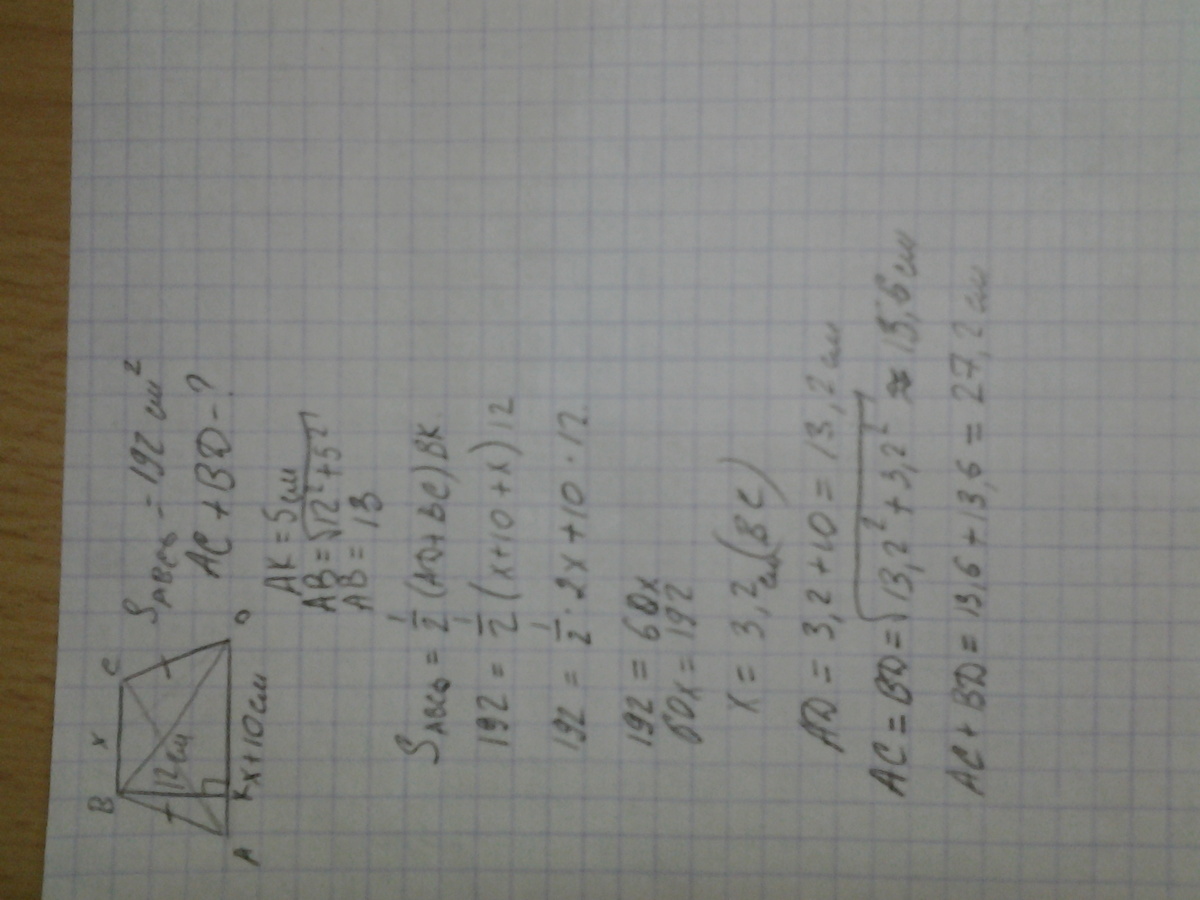 B x C
12 см
A K D
x+10 см
S ABCD = 192 см²
AC + BD - ?
AK = 5 см
AB = √12² + 5²
AB = 13
S ABCD = 1/2 (AD + BC) BK
192 = 1/2 (x + 10 + x) 12
192 = 1/2 · 2x + 10 · 12
192 = 60x
60x = 192
x = 3,2 см (BC)
AD = 3,2 + 10 = 13,2 см
AC = BD = √13,2² + 3,2² ≈ 13,6 см
AC + BD = 13,6 + 13,6 = 27,2 см